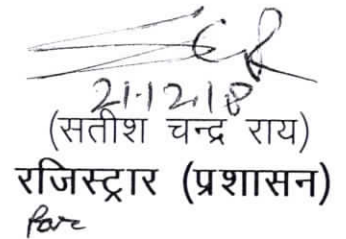 21.12.18
(सतीश चन्द्र राय)
रजिस्ट्रार (प्रशासन)